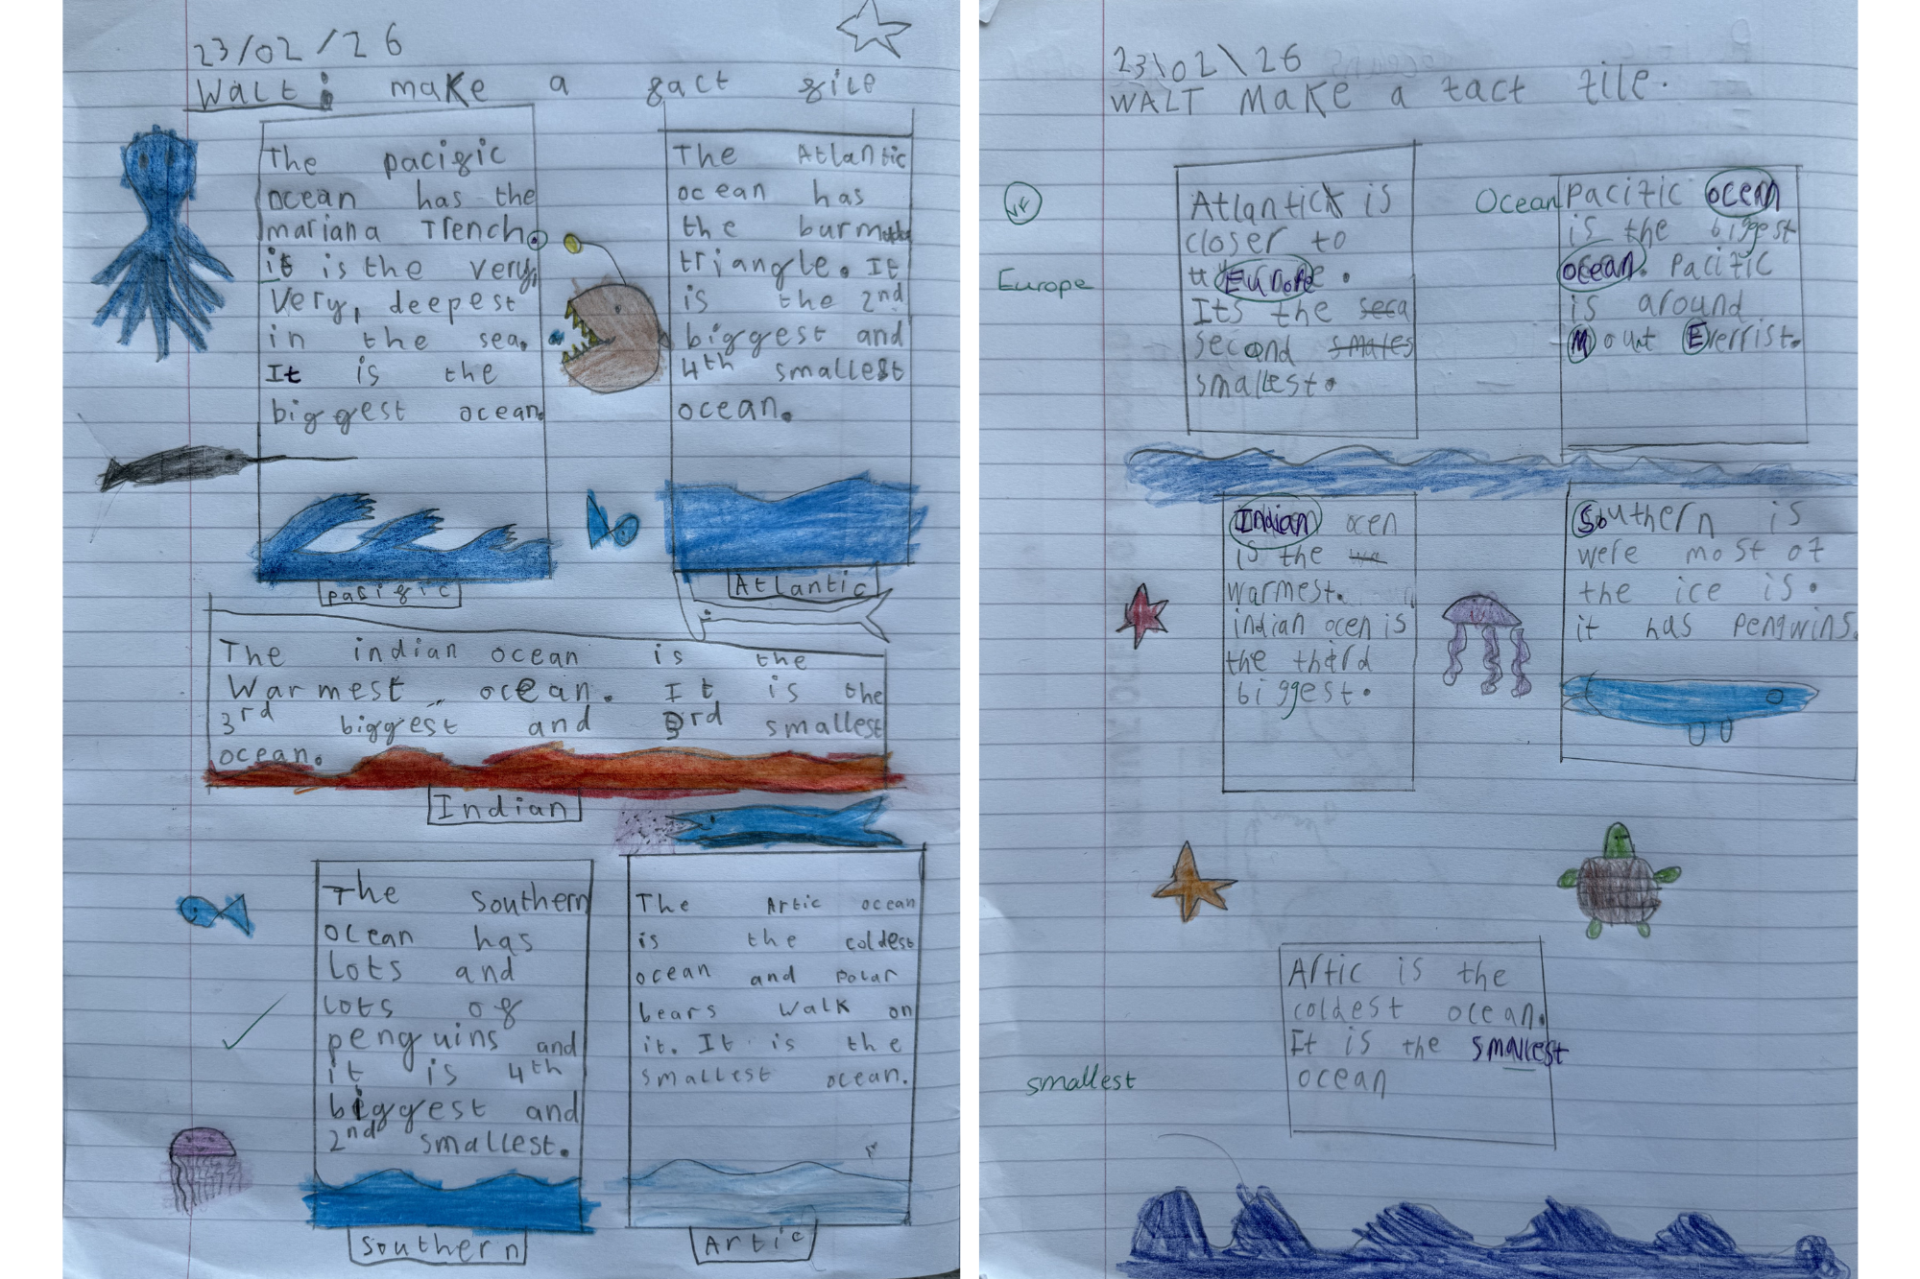 23/02/26
WALT: make a fact file
The pacific
ocean has the
mariana Trench.
it is the very,
very, deepest
in the sea.
It is the
biggest ocean.
pacific
The Atlantic
ocean has
the burmuda
triangle. It
is the 2nd
biggest and
4th smallest
ocean.
Atlantic
The indian ocean is the
warmest ocean. It is the
3rd biggest and 3rd smallest
ocean.
Indian
The Southern
ocean has
lots and
lots of
penguins and
it is 4th
biggest and
2nd smallest.
Southern
The Artic ocean
is the coldest
ocean and polar
bears walk on
it. It is the
smallest ocean.
Artic
23\02\26
WALT Make a fact file.
Atlantick is
closer to
Europe.
Its the seca
second smales
smallest.
Europe
Ocean
Pacific ocean
is the biggest
ocean. Pacific
is around
Mount Everrist.
Indian ocen
is the wa
warmest.
indian ocen is
the third
biggest.
Southern is
were most of
the ice is.
it has pengwins.
Artic is the
coldest ocean.
It is the smallest
ocean
smallest